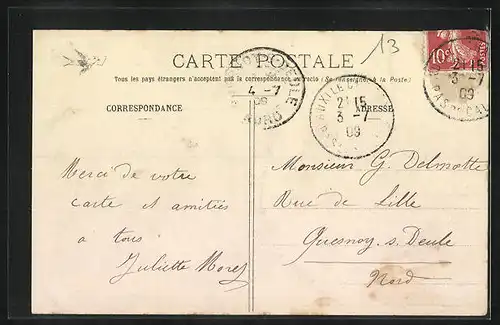 13
CARTE POSTALE
Tous les pays étrangers n'acceptent pas la correspondance au recto (Se renseigner à la Poste)
CORRESPONDANCE
ADRESSE
10c
POSTES
21 15
3 -7
09
PAS DE CAL
4 -7
09
NORD
21 15
3 -7
09
Merci de votre
carte et amitiés
a tous
Juliette Morel
Monsieur G. Delmotte
Rue de Lille
Quesnoy. s. Deule
Nord